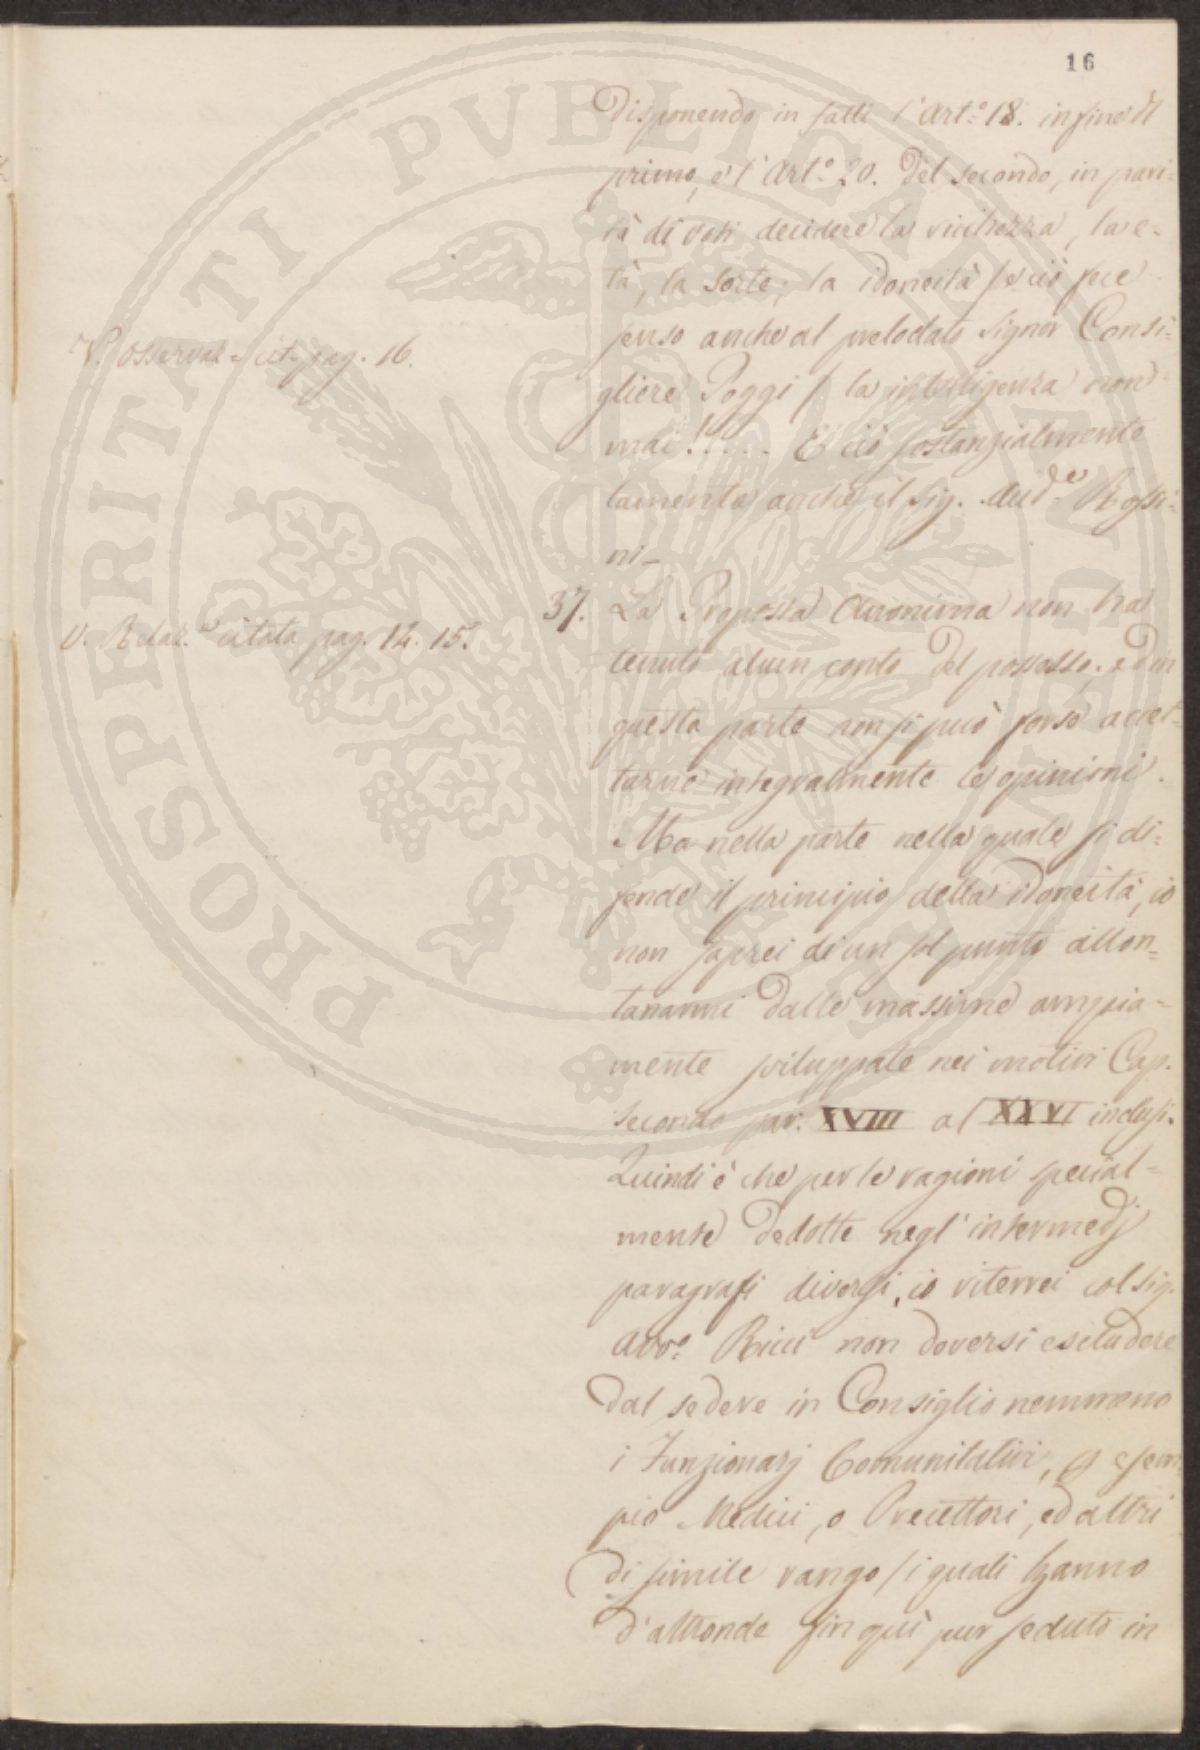 16
Disponendo in fatti l'Art.º 18. in fine del
primo, e l'Art.º 20. del secondo, in pari-
tà di voti decidere la ricchezza, la e-
tà, la sorte; la idoneità / e ciò fece
senso anche al prelodato Signor Consi-
gliere Poggi / la intelligenza non
mai!.... E ciò sostanzialmente
lamenta anche il Sig. Aud.e Rossi-
ni_
V. Osservaz. cit. pag. 16.
37. La Proposta Anonima non ha
tenuto alcun conto del possesso, ed in
questa parte non si può forse accet-
tarne integralmente le opinioni.
Ma nella parte nella quale si di-
fende il principio della idoneità, io
non saprei di un sol punto allon-
tanarmi dalle massime ampia-
mente sviluppate nei motivi Cap.
secondo par. XVIII al XXVI inclusi.
Quindi è che per le ragioni special-
mente dedotte negl'intermedj
paragrafi diversi, io riterrei col Sig.
Avv.º Ricci non doversi escludere
dal sedere in Consiglio nemmeno
i Funzionarj Comunitativi, p. esem
pio Medici, o Precettori, ed altri
di simile rango / i quali hanno
d'altronde fin quì pur seduto in
V. Relaz.e citata pag. 14. 15.
PROSPERITATI PUBLICAE